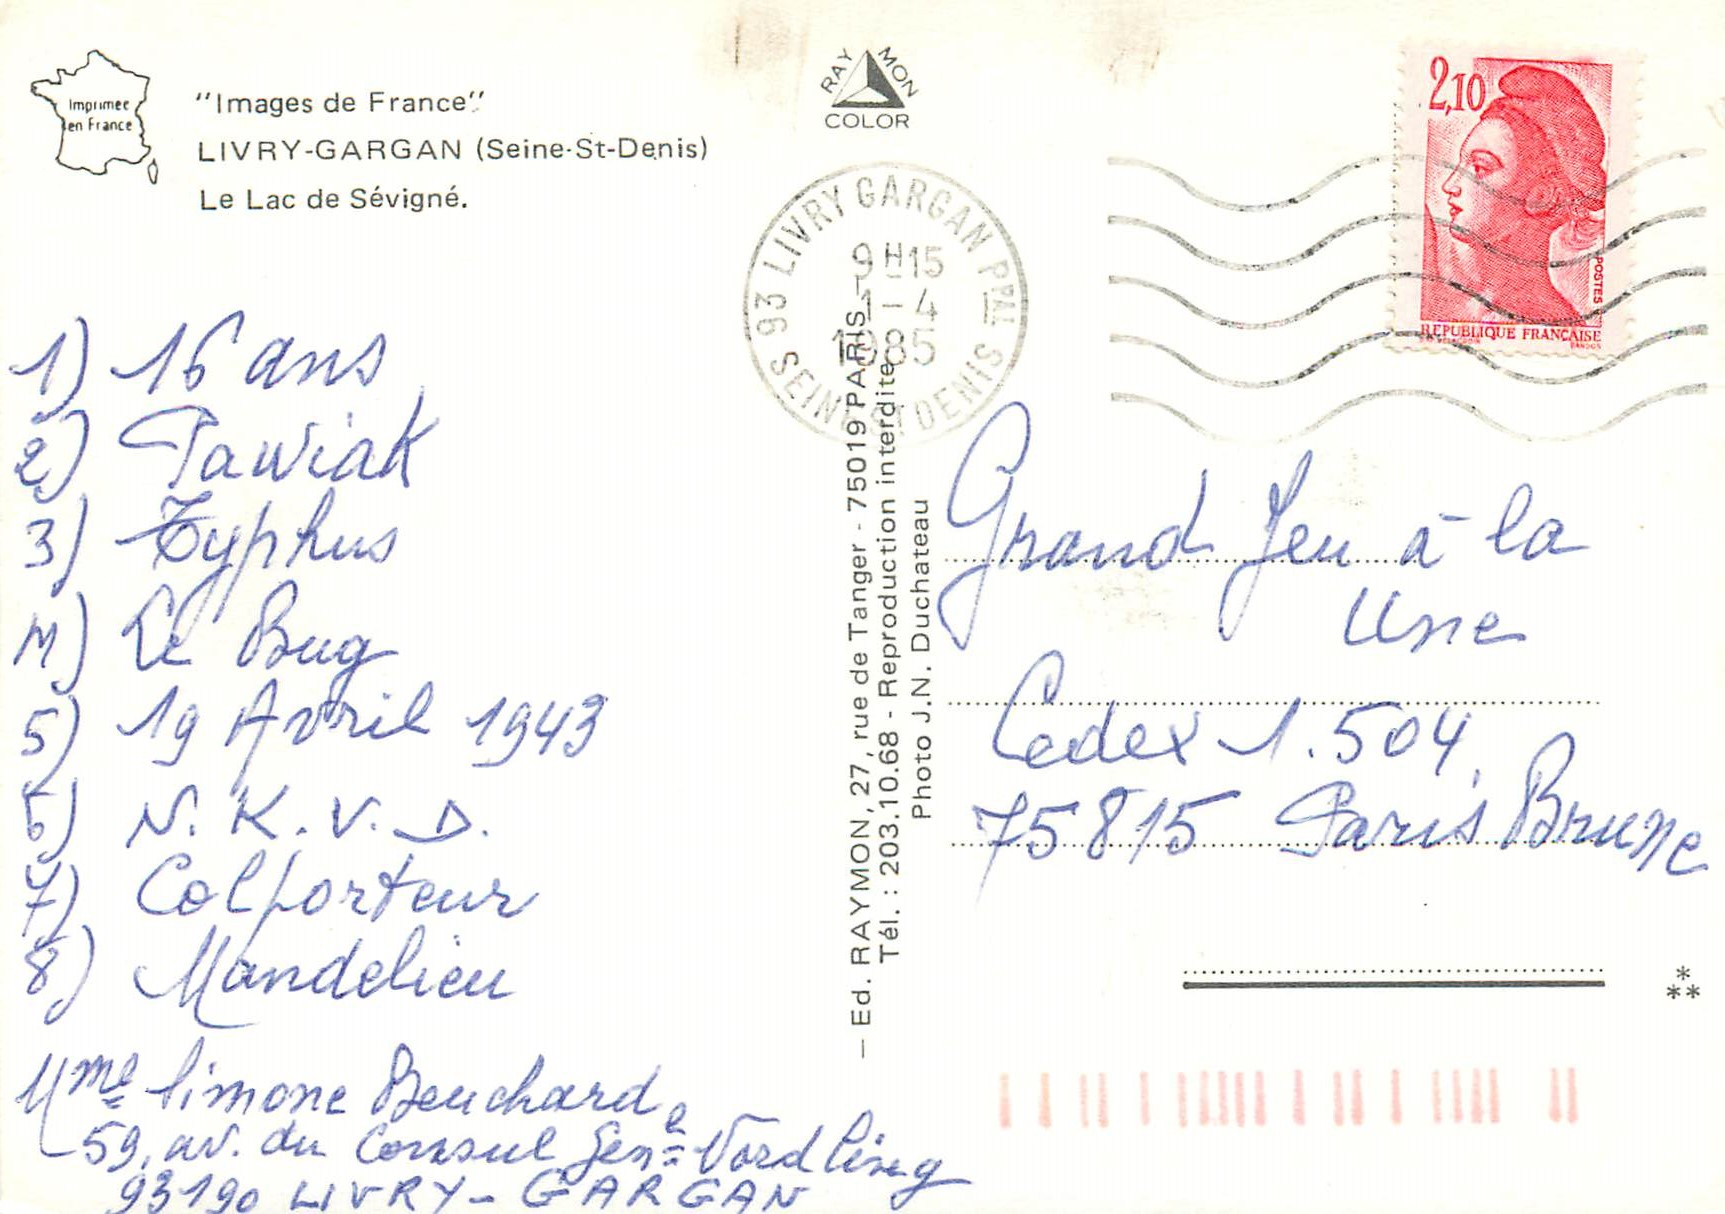 Imprimée
en France
"Images de France"
LIVRY-GARGAN (Seine-St-Denis)
Le Lac de Sévigné.
RAYMON
COLOR
93 LIVRY GARGAN PPAL
9H15
1-4
1985
SEINE ST DENIS
2,10
POSTES
REPUBLIQUE FRANÇAISE
1) 16 ans
2) Pawiak
3) Typhus
4) Le Bug
5) 19 Avril 1943
6) N.K.V.D.
7) Colporteur
8) Mandelieu
Mme Simone Beuchard
59, av. du Consul Gene Nordling
93190 LIVRY-GARGAN
— Ed. RAYMON, 27, rue de Tanger - 75019 PARIS —
Tél. : 203.10.68 - Reproduction interdite
Photo J.N. Duchateau
Grand Jeu à la
Une
Cedex 1.504
75815 Paris Brune
*
**